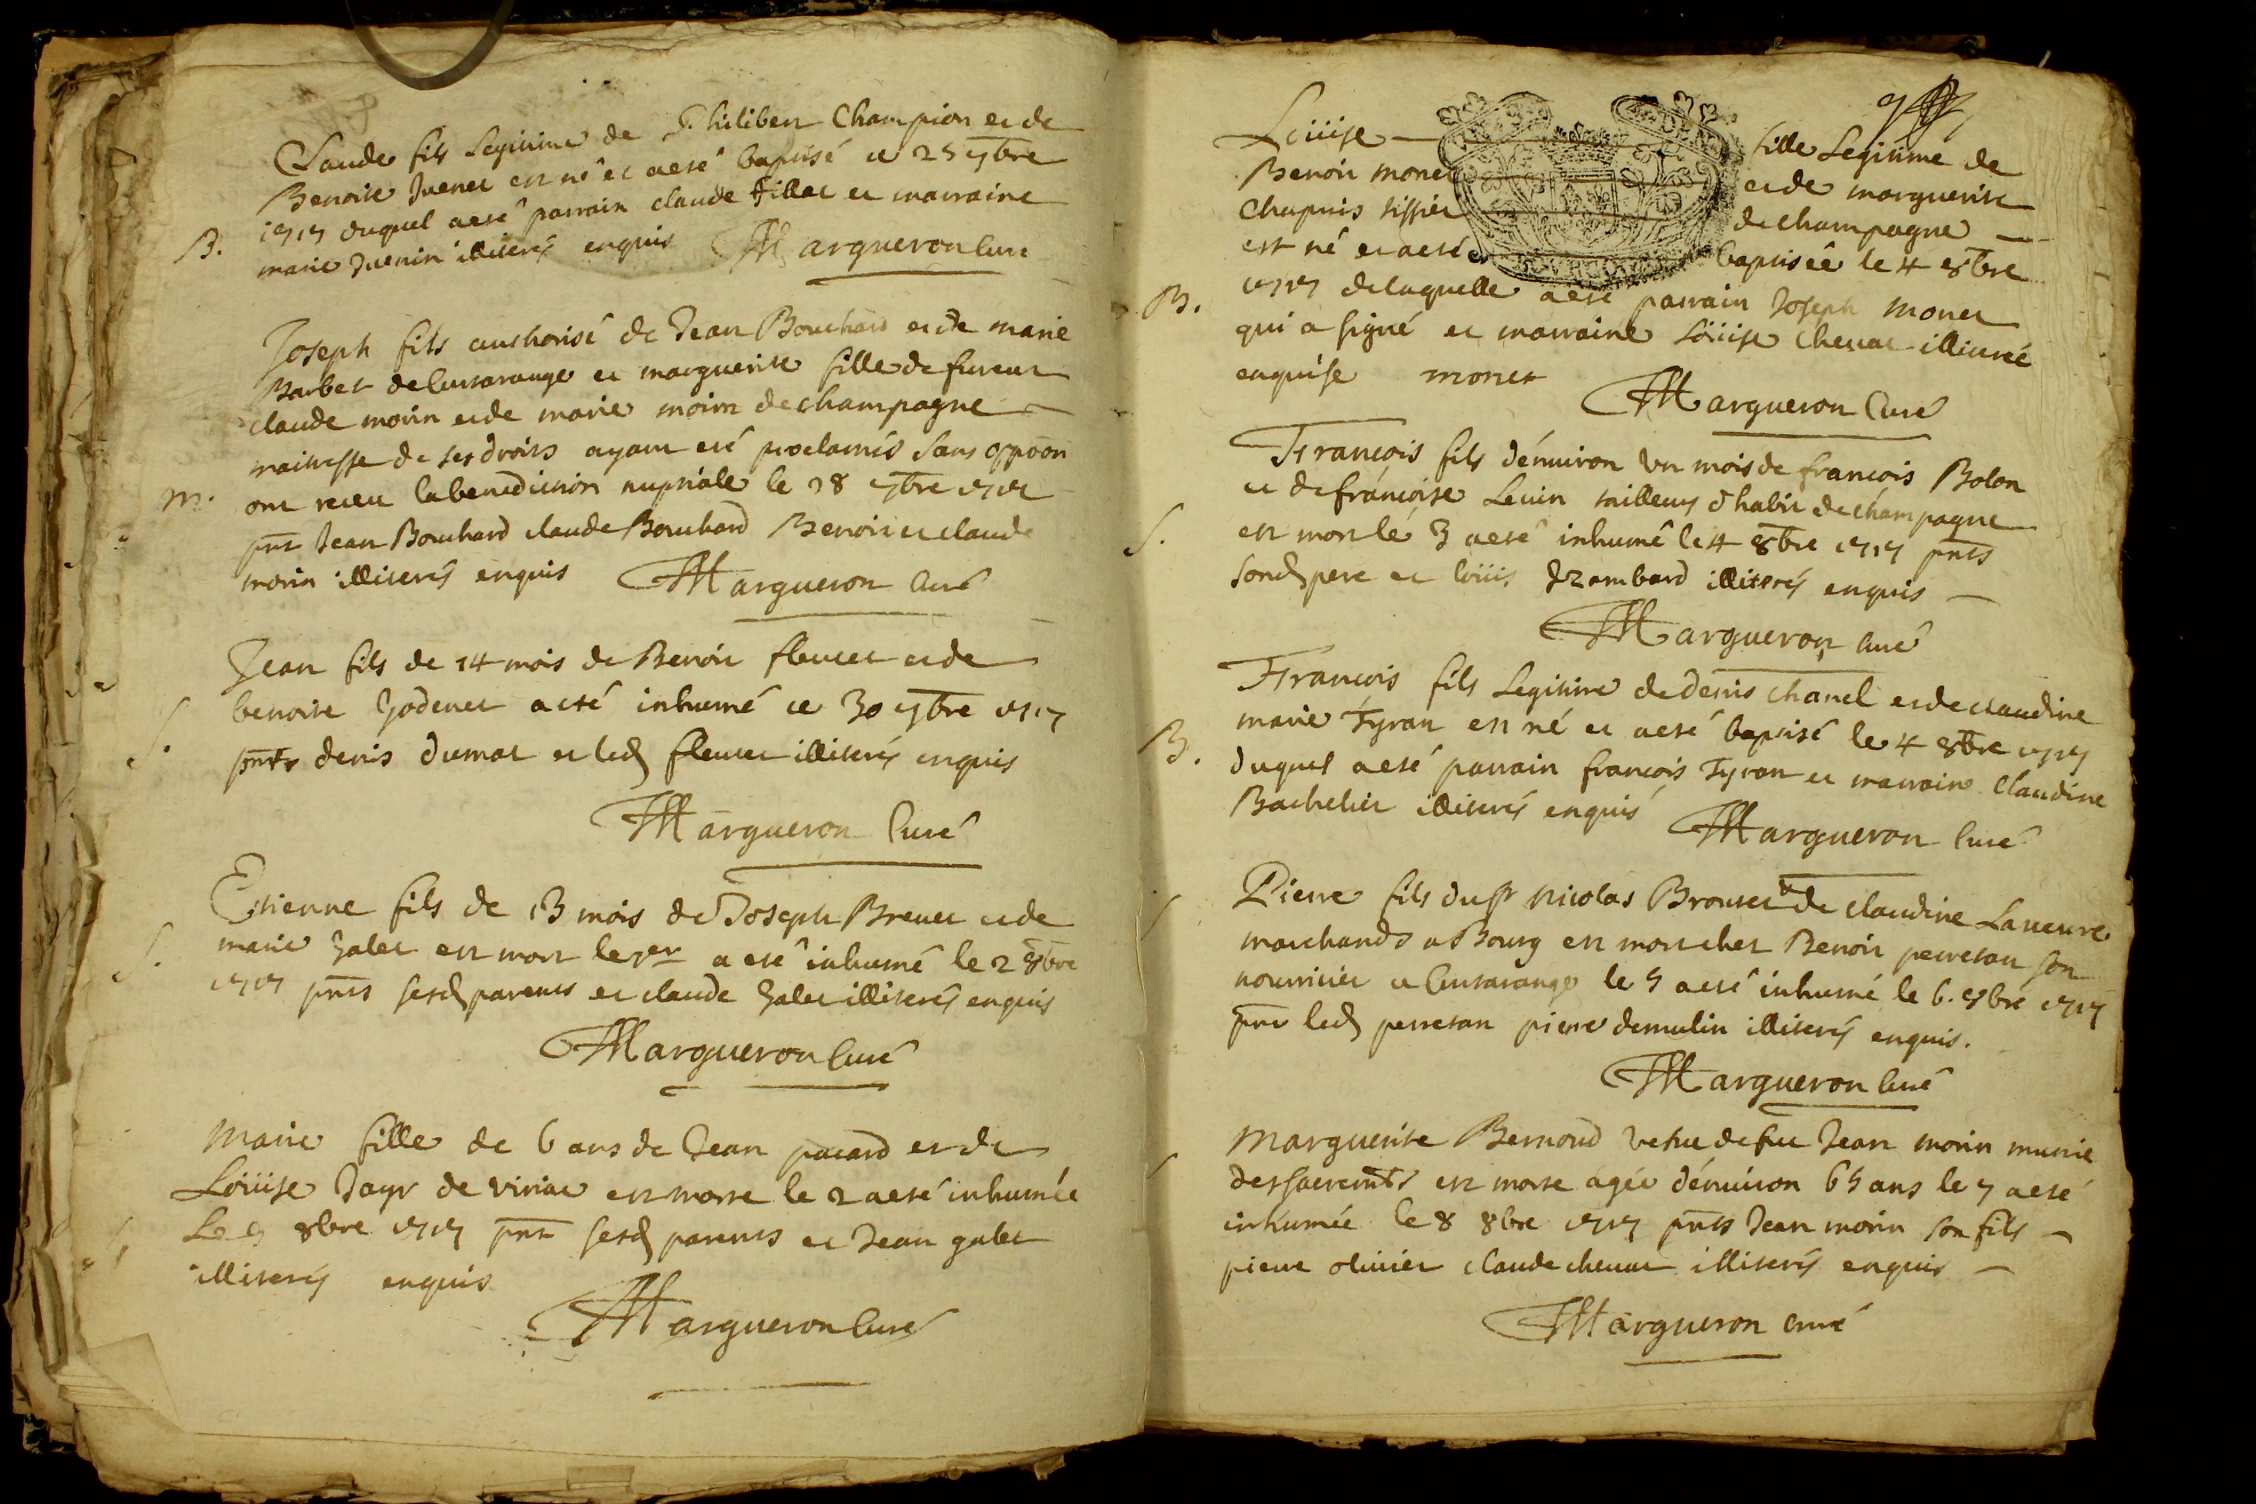 Claude fils Legitime de Philibert Champion et de
Benoite Juenet est né et a eté baptisé ce 25 7bre
1717 duquel a eté parrain claude fillet et marraine
B.
marie Juenin illiterés enquis Margueron Curé
Joseph fils authorisé de Jean Bouchard et de marie
Barbet de Cutarange et marguerite fille de
claude morin et de marie moirn de champagne
maitresse de ses droits ayant eté proclamés sans oppoon
M.
ont receu la benediction nuptiale le 28 7bre 1717
pnt Jean Bouchard claude Bouchard Benoit et claude
morin illiterés enquis Margueron Curé
Jean fils de 14 mois de Benoit fleuret et de
benoite Godenet a eté inhumé ce 30 7bre 1717
S.
pnts denis dumat et led fleuret illiterés enquis
Margueron Curé
Etienne fils de 13 mois de Joseph Brevet et de
marie Galet est mort le 1er a eté inhumé le 2 8bre
S.
1717 pnts sesd parents et claude Galet illiterés enquis
Margueron Curé
Marie fille de 6 ans de Jean pacard et de
Loüise Jayr de viriat est morte le 2 a eté inhumée
S.
Le 3 8bre 1717 pnt sesd parents et Jean galet
illiterés enquis
Margueron Curé
Loüise fille Legitime de
Benoit monet et de marguerite
Chapuis tissier de champagne
est né et a eté baptisée le 4 8bre
B.
1717 de laquelle a eté parrain Joseph Monet
qui a signé et marraine Loüise Chevat illiteré
enquise monet
Margueron Curé
François fils d'énuiron un mois de françois Bolon
et de françoise Levin tailleurs d'habit de champagne
S.
est mort le 3 a eté inhumé le 4 8bre 1717 pnts
sond pere et loüis Jzambard illiterés enquis
Margueron Curé
François fils Legitime de denis Chanel et de claudine
marie Tyran est né et a eté baptisé le 4 8bre 1717
B.
duquel a eté parrain françois Tyran et marraine Claudine
Bachelier illiterés enquis Margueron Curé
Pierre fils du sr Nicolas Brouset & de claudine Laueure
S
marchands a Bourg est mort chez Benoit perretan son
nourricier a Cutarange le 5 a eté inhumé le 6. 8bre 1717
pnt led perretan pierre demulin illiterés enquis.
Margueron Curé
Marguerite Bernoud vefue de feu Jean morin munie
S
des sacremts est morte agée d'énuiron 65 ans le 7 a eté
inhumée le 8 8bre 1717 pnts Jean morin son fils
pierre oliuier claude chevat illiterés enquis
Margueron Curé